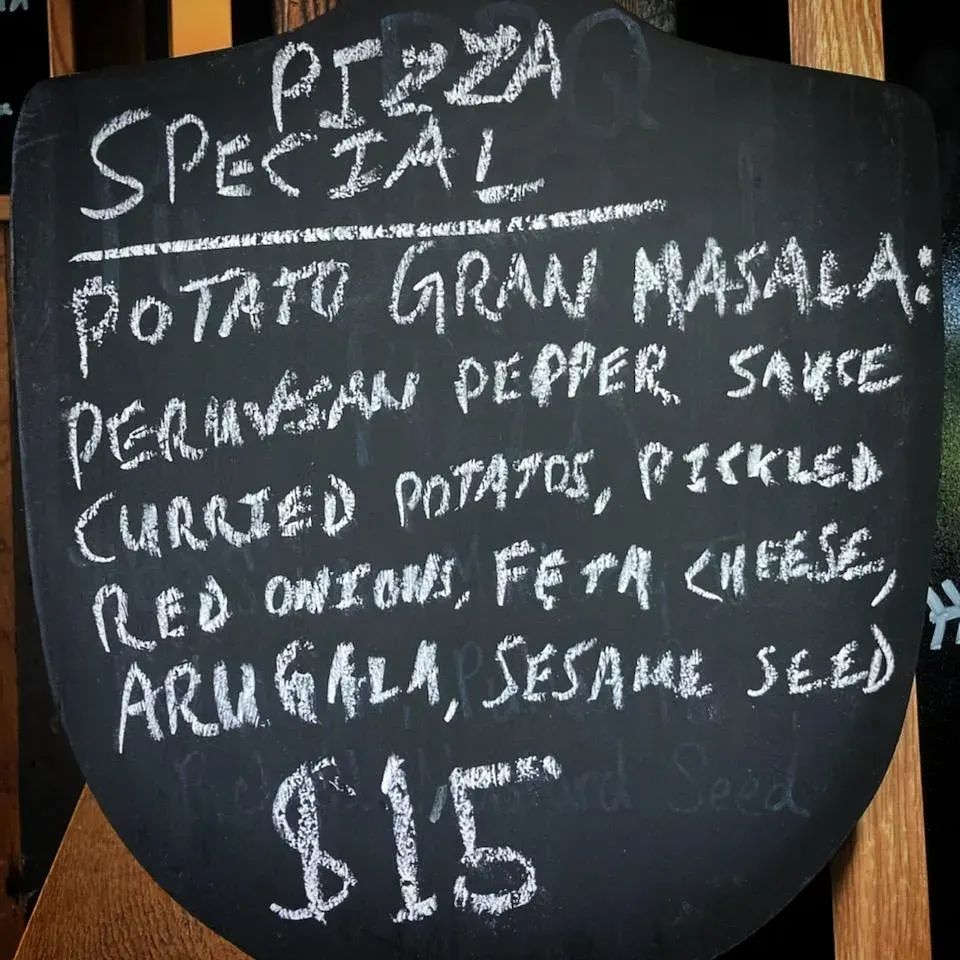 PIZZA
SPECIAL
POTATO GRAN MASALA:
PERUVIAN PEPPER SAUCE
CURRIED POTATOS, PICKLED
RED ONIONS, FETA CHEESE,
ARUGALA, SESAME SEED
$15